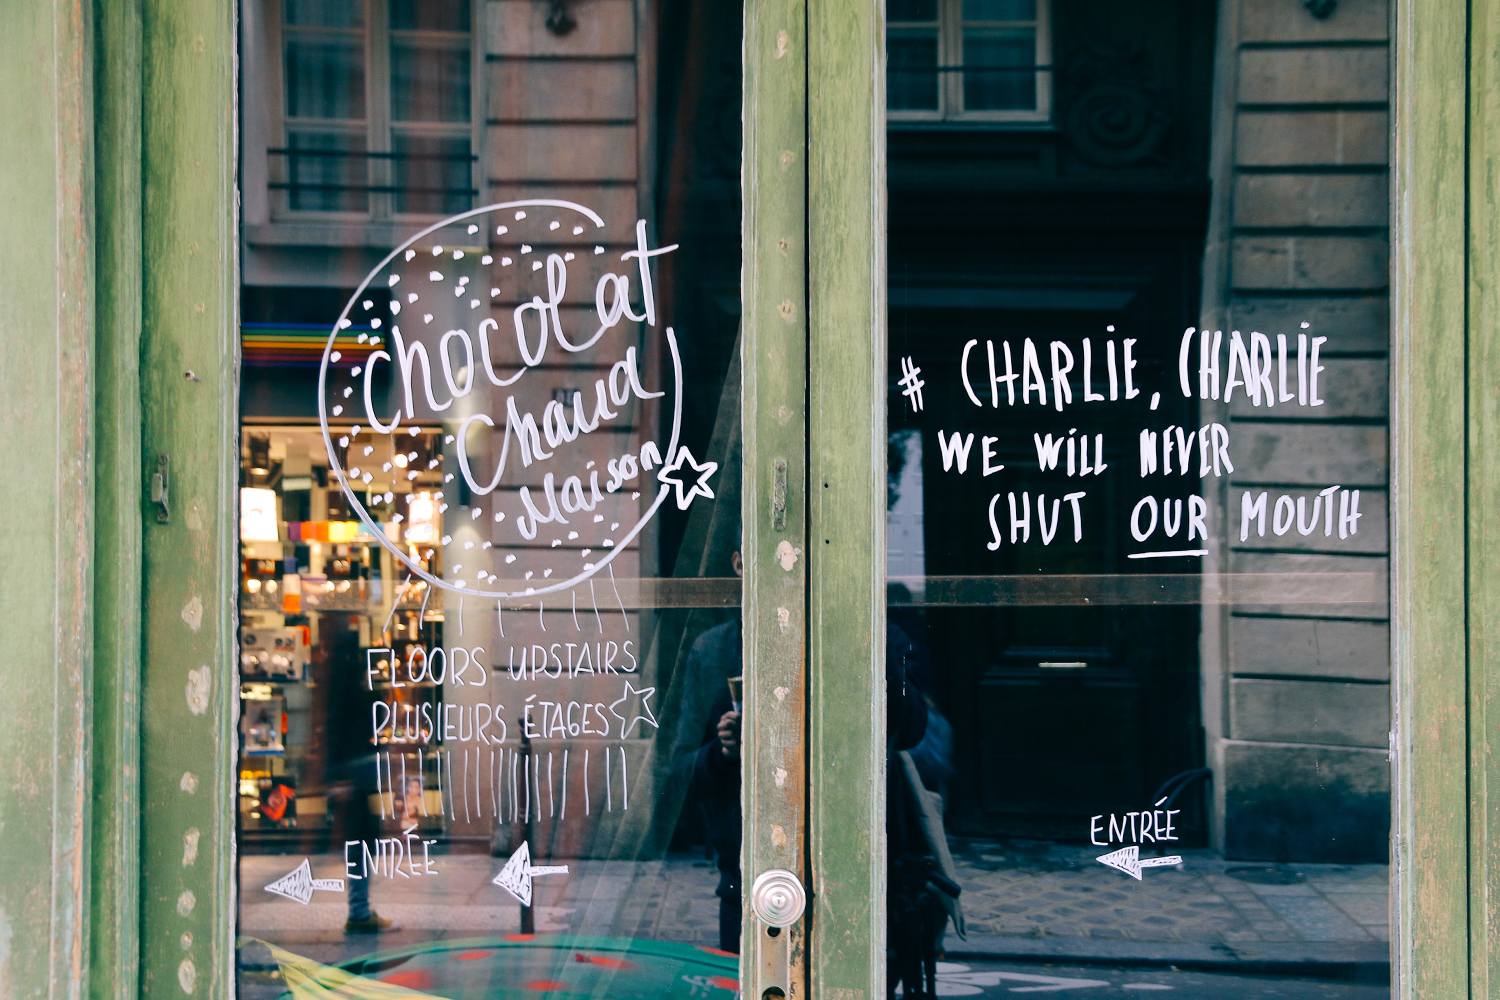 chocolat
Chaud
Maison
FLOORS UPSTAIRS
PLUSIEURS ÉTAGES
ENTRÉE
# CHARLIE, CHARLIE
WE WILL NEVER
SHUT OUR MOUTH
ENTRÉE